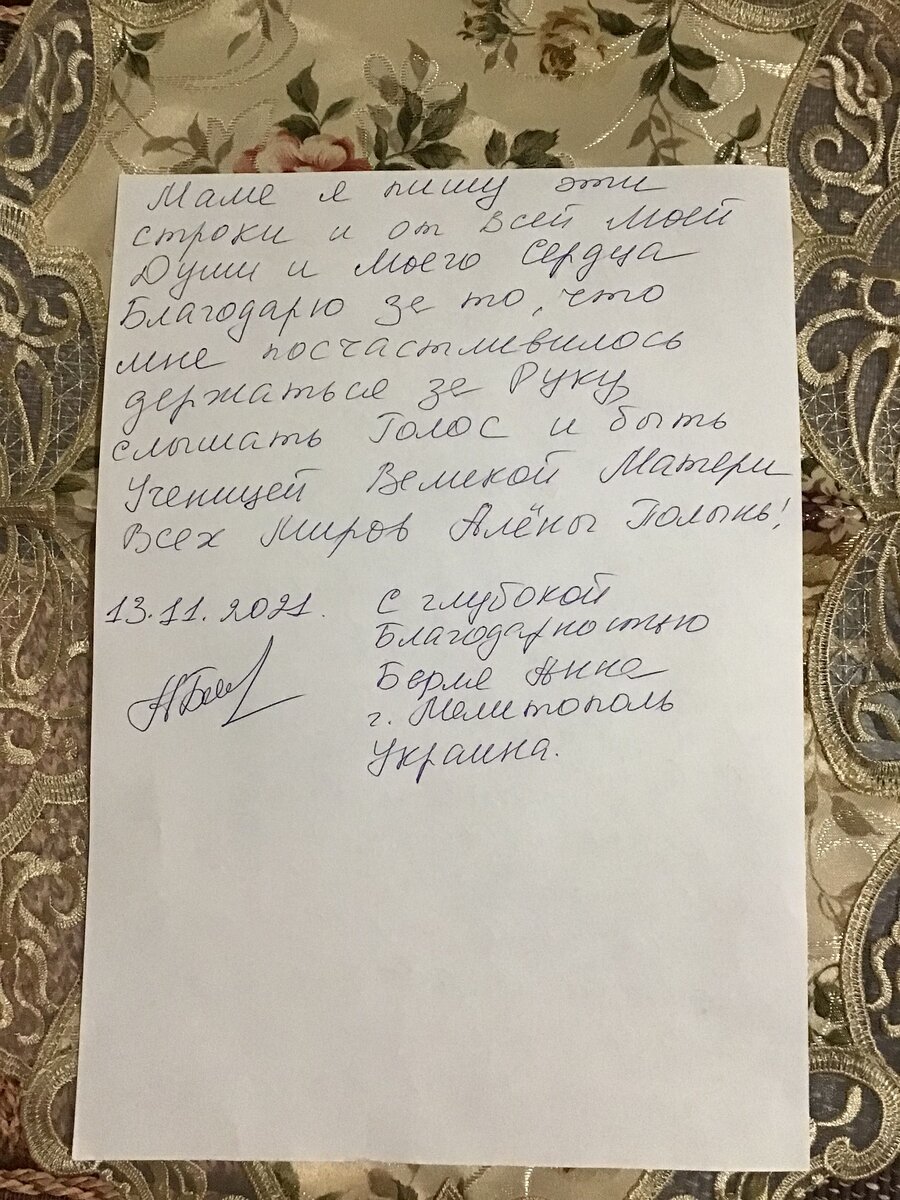 Маме я пишу эти
строки и от Всей Моей
Души и Моего Сердца
Благодарю за то, что
мне посчастливилось
держаться за Руку,
слышать Голос и быть
Ученицей Великой Матери
Всех Миров Алёны Полынь!
13.11.2021. С глубокой
Благодарностью
Анна
г. Мелитополь
Украина.